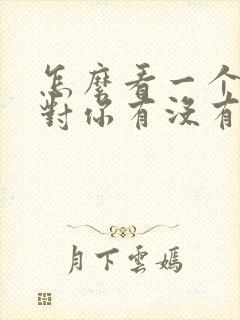 怎麼看一个
對你有沒有
月下雲嫣